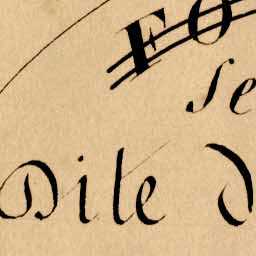 FO
Se
Dite D